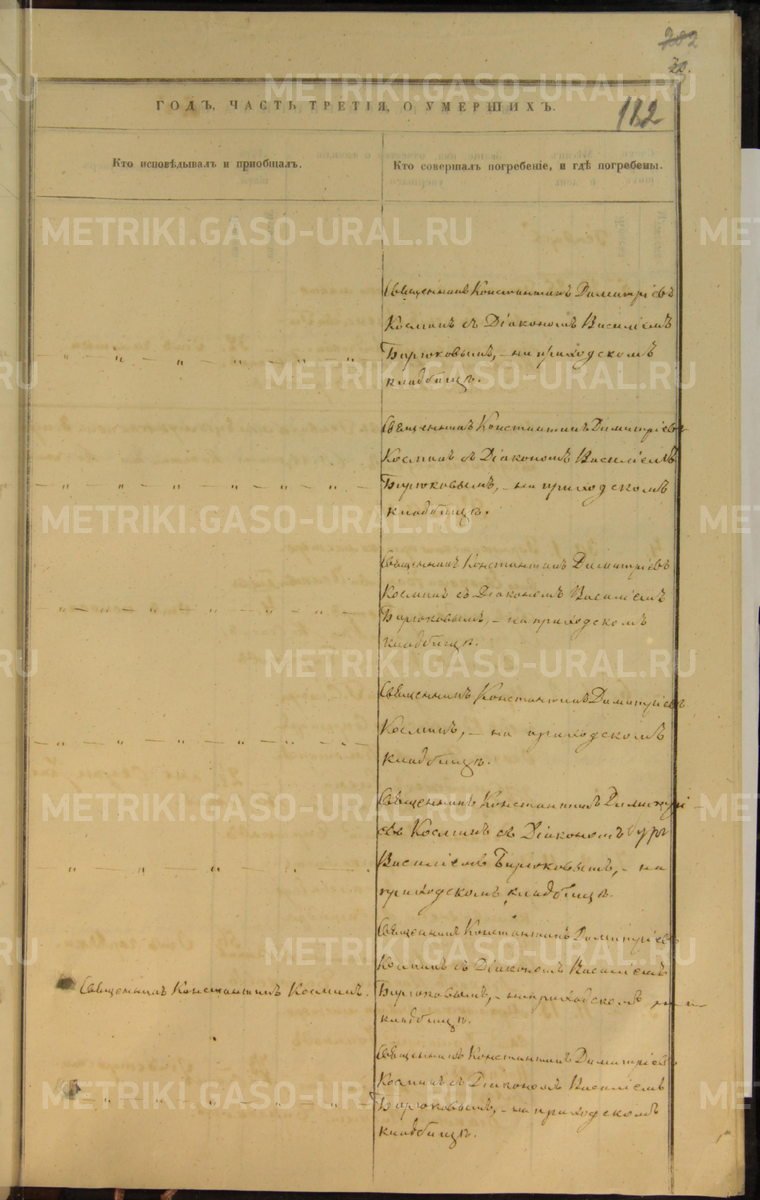 202
20.
ГОДЪ, ЧАСТЬ ТРЕТІЯ, О УМЕРШИХЪ.
112
Кто исповѣдывалъ и пріобщалъ.
Кто совершалъ погребеніе, и гдѣ погребены.
METRIKI.GASO-URAL.RU
Священникъ Константинъ Димитріевъ
Косминъ съ Діакономъ Василіемъ
Бирюковымъ, – на приходскомъ
кладбищѣ.
Священникъ Константинъ Димитріевъ
Косминъ съ Діакономъ Василіемъ
Бирюковымъ, – на приходскомъ
кладбищѣ.
Священникъ Константинъ Димитріевъ
Косминъ съ Діакономъ Василіемъ
Бирюковымъ, – на приходскомъ
кладбищѣ.
Священникъ Константинъ Димитріевъ
Косминъ, – на приходскомъ
кладбищѣ.
Священникъ Константинъ Димитрі-
евъ Косминъ съ Діакономъ
Василіемъ Бирюковымъ, – на
приходскомъ кладбищѣ.
Священникъ Константинъ Косминъ.
Священникъ Константинъ Димитріевъ
Косминъ съ Діакономъ Василіемъ
Бирюковымъ, – на приходскомъ
кладбищѣ.
Священникъ Константинъ Димитріевъ
Косминъ съ Діакономъ Василіемъ
Бирюковымъ, – на приходскомъ
кладбищѣ.